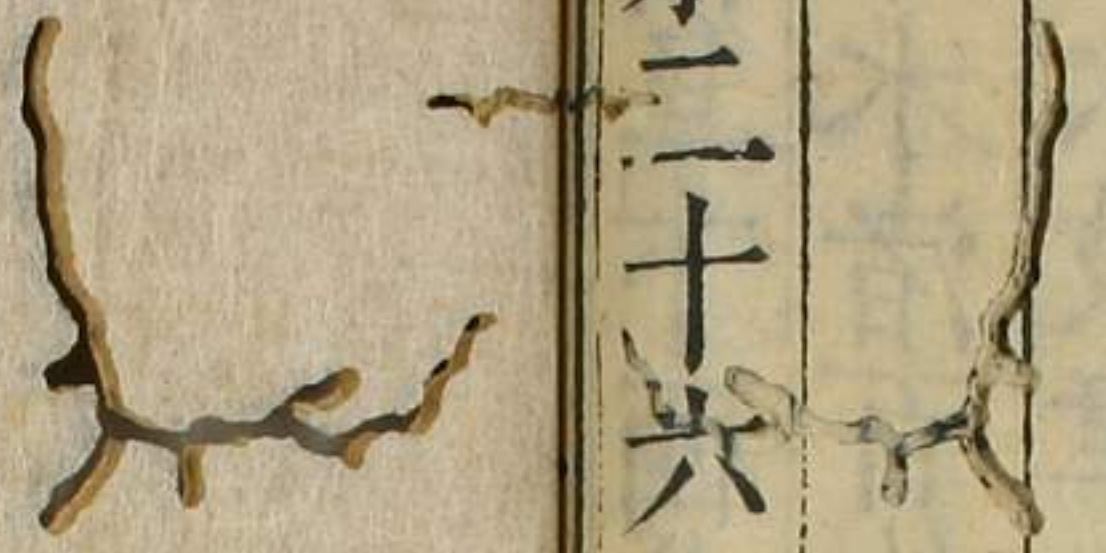 二十六